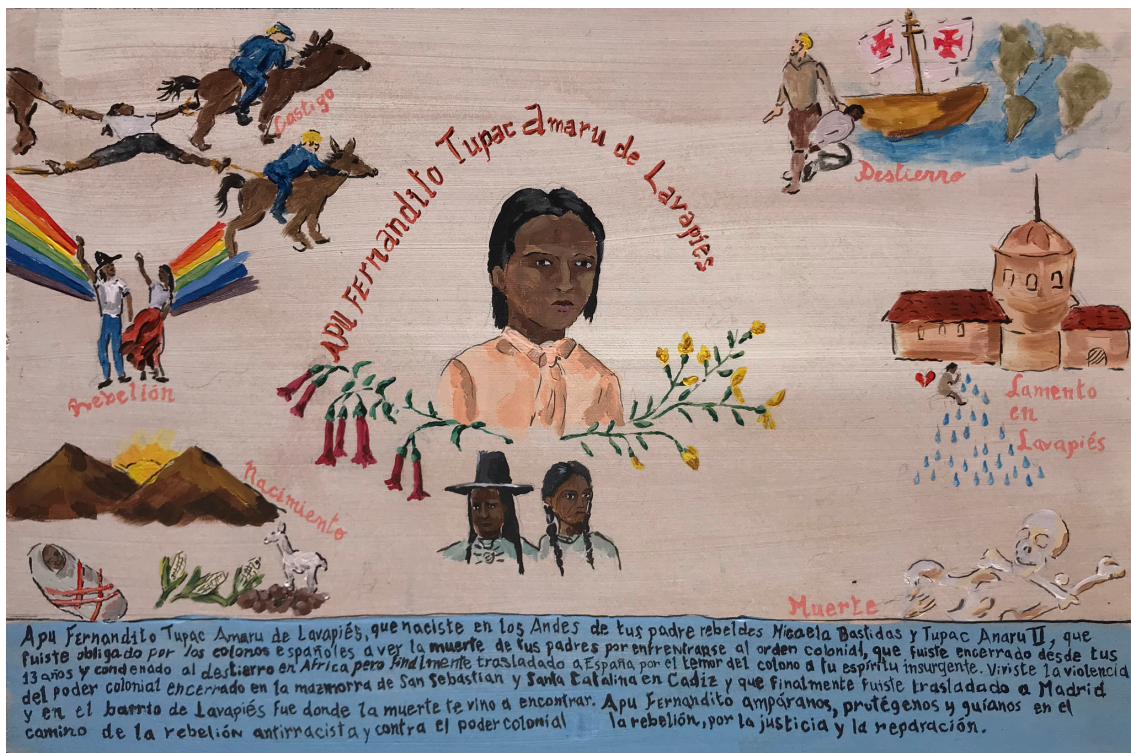 Castigo
APU FERNANDITO Tupac Amaru de Lavapiés
Destierro
Rebelión
Lamento
en
Lavapiés
Nacimiento
Muerte
Apu Fernandito Tupac Amaru de Lavapiés, que naciste en los Andes de tus padre rebeldes Micaela Bastidas y Tupac Anaru II, que
fuiste obligado por los colonos españoles a ver la muerte de tus padres por enfrentarse al orden colonial, que fuiste encerrado desde tus
13 años y condenado al destierro en Africa pero finalmente trasladado a España por el temor del colono a tu espíritu insurgente. Viviste la violencia
del poder colonial encerrado en la mazmorra de San Sebastian y Santa Catalina en Cadiz y que finalmente fuiste trasladado a Madrid
y en el barrio de Lavapiés fue donde la muerte te vino a encontrar. Apu Fernandito ampáranos, protégenos y guíanos en el
camino de la rebelión antirracista y contra el poder colonial la rebelión, por la justicia y la reparación.